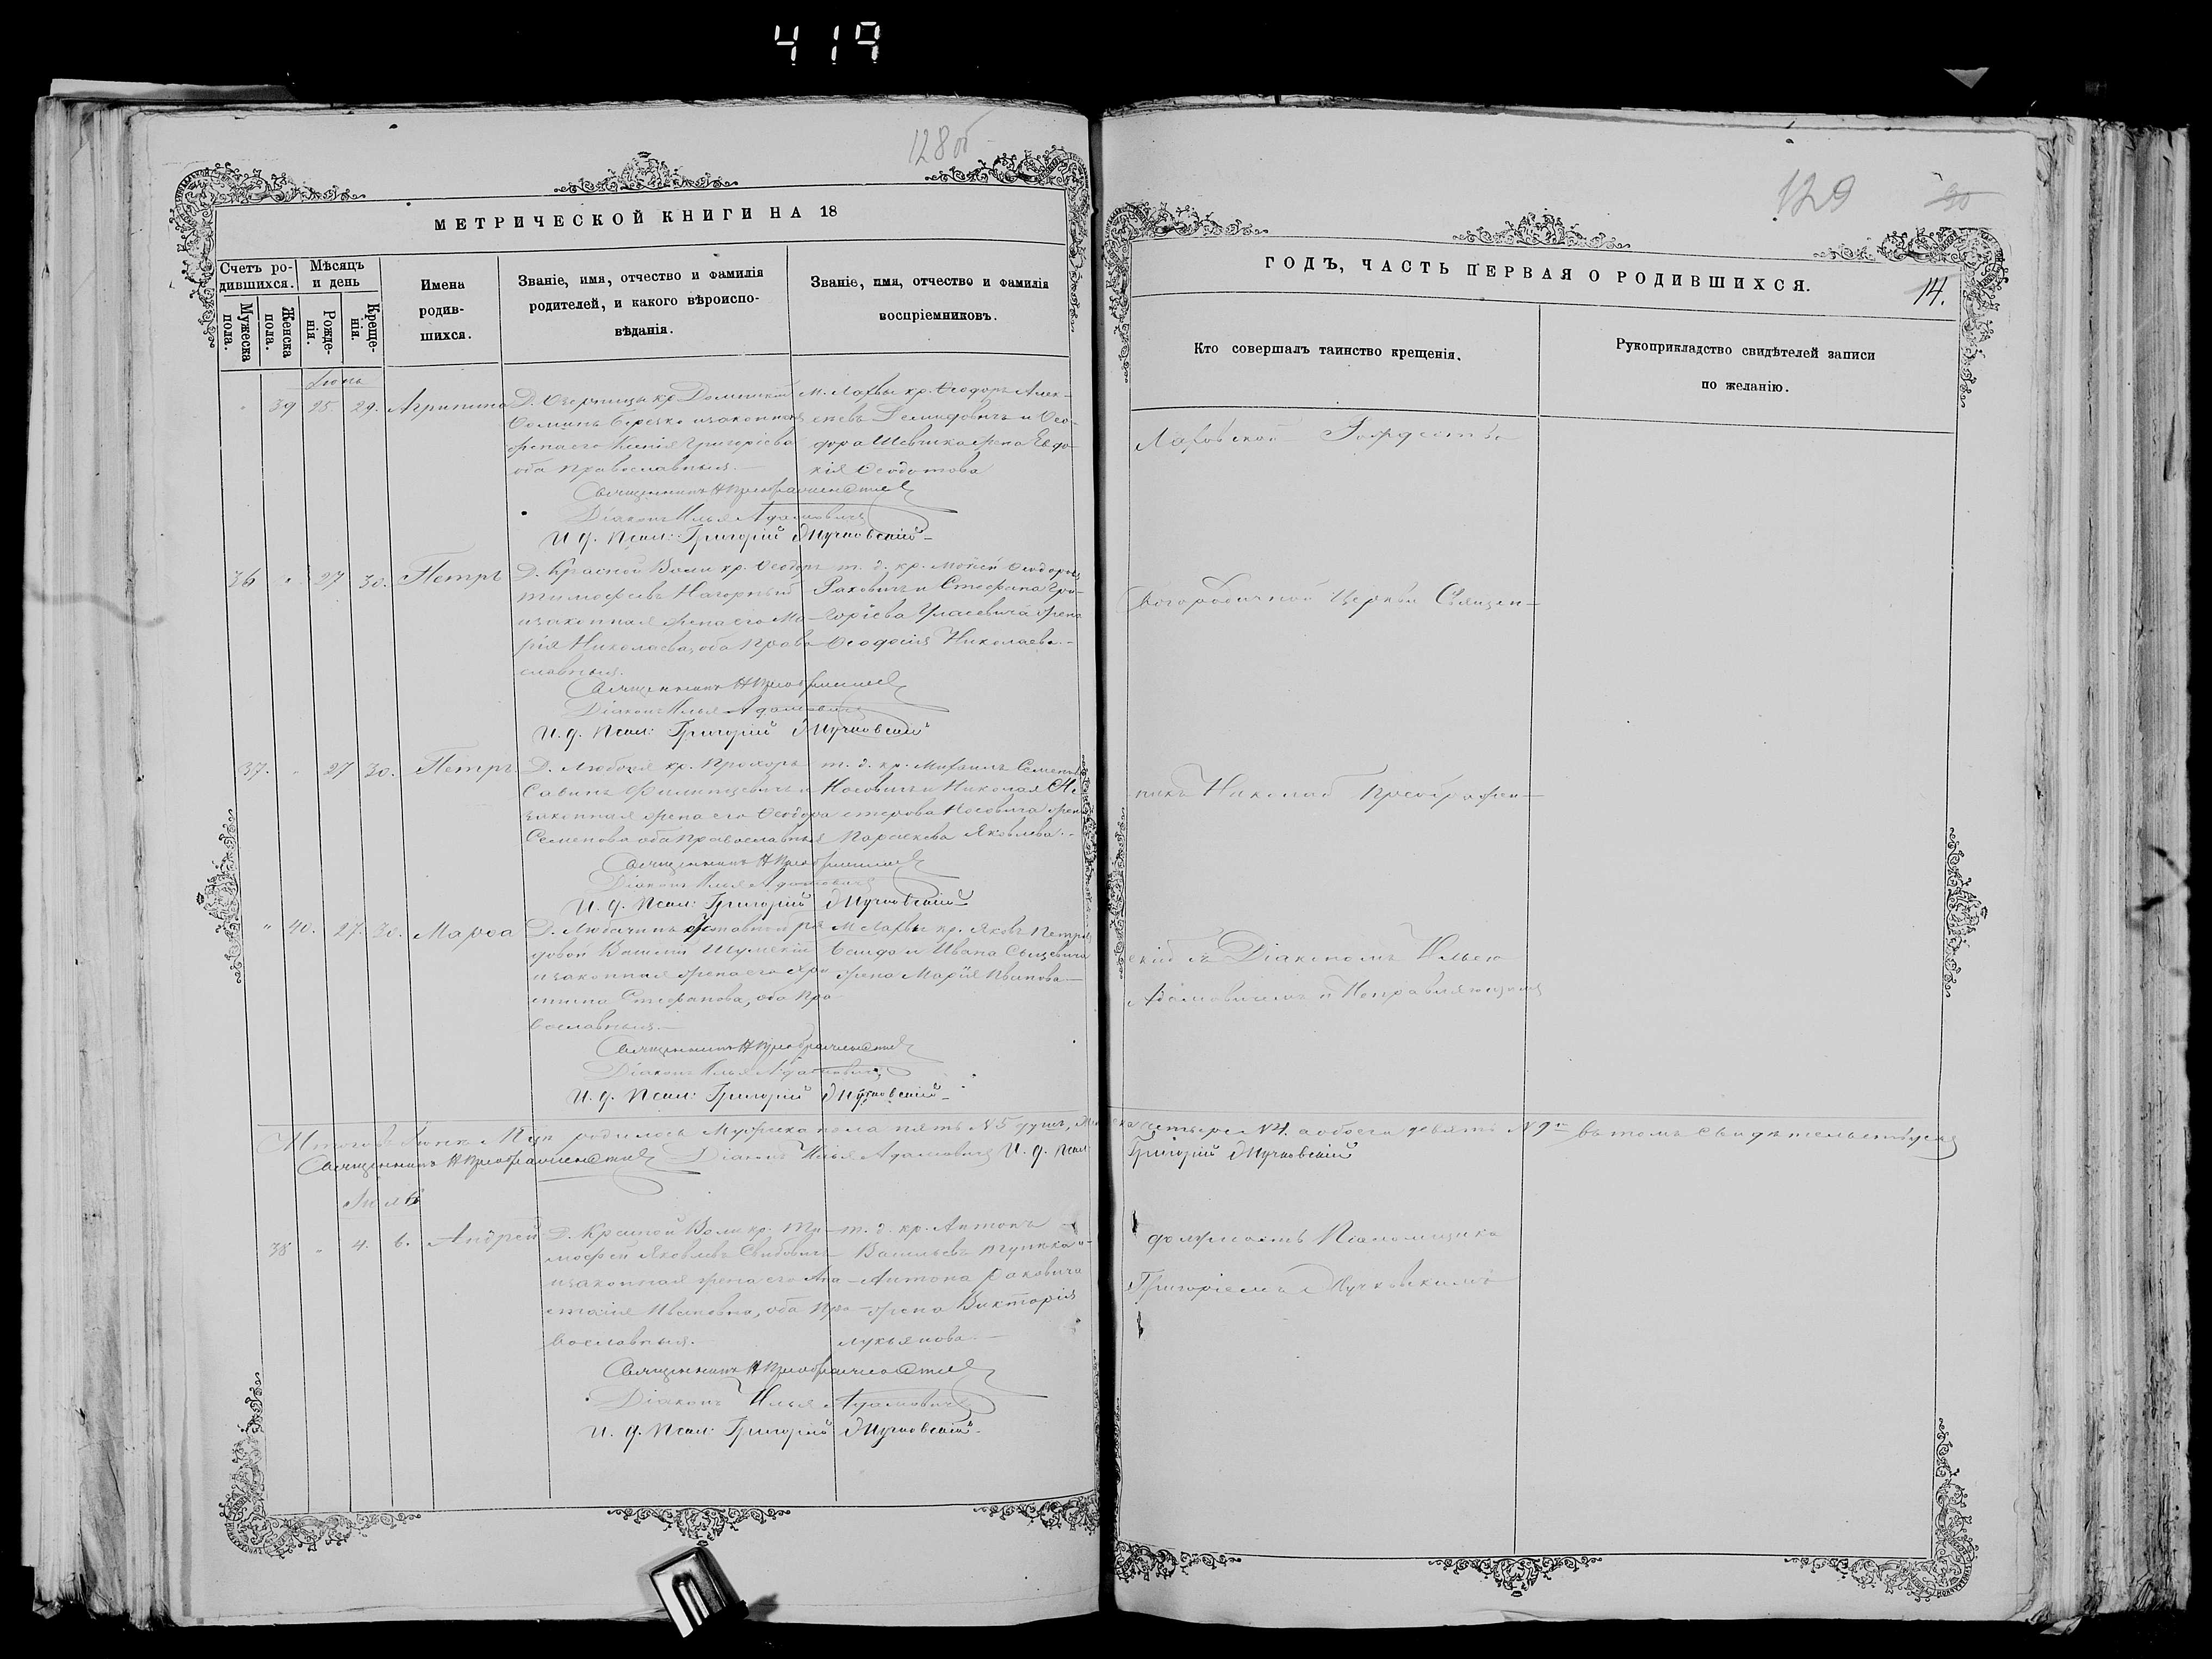 419
128об
МЕТРИЧЕСКОЙ КНИГИ НА 18
Счетъ ро-
дившихся.
Мѣсяцъ
и день
Мужеска
пола.
Женска
пола.
Рожде-
нія.
Креще-
нія.
Имена
родив-
шихся.
Званіе, имя, отчество и фамилія
родителей, и какого вѣроиспо-
вѣданія.
Званіе, имя, отчество и фамилія
воспріемниковъ.
Іюнь
" 39 25. 29. Агрипина
Д. Озерницы кр. Доминикій
Ѳоминъ и законная
жена его Ксенія Григоріева
оба православныя.
М. Лахвы кр. Ѳеодоръ Алек-
сеевъ Демидовичъ и Ѳео-
дора Шевчика жена Евдо-
кія Ѳеодотова
Священникъ Н Преображенскій
Діаконъ Илья Адамовичъ
И. д. Псал: Григорій Мучновскій
36 " 27 30. Петръ
Д. Красной Воли кр. Ѳеодоръ
Тимофеевъ Нагорный
и законная жена его Ма-
рія Николаева, оба право-
славныя.
т. д. кр. Мойсей Ѳеодоровъ
Раковичъ и Стефана Гри-
горіева Уласевича жена
Ѳеодосія Николаева.
Священникъ Н Преображенскій
Діаконъ Илья Адамовичъ
И. д. Псал: Григорій Мучновскій
37. " 27 30. Петръ
Д. Любачня кр. Прохоръ
Савинъ Филипцевичъ и
законная жена его Ѳеодора
Семенова оба православныя
т. д. кр. Михаилъ Семеновъ
Носовичъ и Николая Не-
стерова Носовича жена
Параскева Яковлева.
Священникъ Н Преображенскій
Діаконъ Илья Адамовичъ
И. д. Псал: Григорій Мучновскій
" 40. 27. 30. Марѳа
Д. Любачинъ отставной ря-
довой Василій Шумскій
и законная жена его Хри-
стина Стефанова, оба пра-
вославныя.
М Лахвы кр. Яковъ Петровъ
и Ивана
жена Марія Иванова
Священникъ Н Преображенскій
Діаконъ Илья Адамовичъ
И. д. Псал: Григорій Мучновскій
Итого въ Іюнь М-цѣ родилось Мужеска пола пять №5 душъ, Женска четыре №4. а обоего девять №9 въ томъ свидѣтельствуемъ
Священникъ Н Преображенскій Діаконъ Илья Адамовичъ И. д. Псал: Григорій Мучновскій
Іюль
38 " 4. 6. Андрей
Д. Красной Воли кр. Ти-
мофей Яковлевъ Свидовичъ
и законная жена его Ана-
стасія Ивановна, оба пра-
вославныя.
т. д. кр. Антонъ
Васильевъ и
Антона Раковича
жена Викторія
Лукьянова
Священникъ Н Преображенскій
Діаконъ Илья Адамовичъ
И. д. Псал: Григорій Мучновскій
129
30
ГОДЪ, ЧАСТЬ ПЕРВАЯ О РОДИВШИХСЯ.
14.
Кто совершалъ таинство крещенія.
Рукоприкладство свидѣтелей записи
по желанію.
Лаховской Рождество
Богородичной Церкви Священ-
никъ Николай Преображен-
скій съ Діакономъ Ильею
Адамовичемъ и Исправляющимъ
должность Псаломщика
Григоріемъ Мучновскимъ